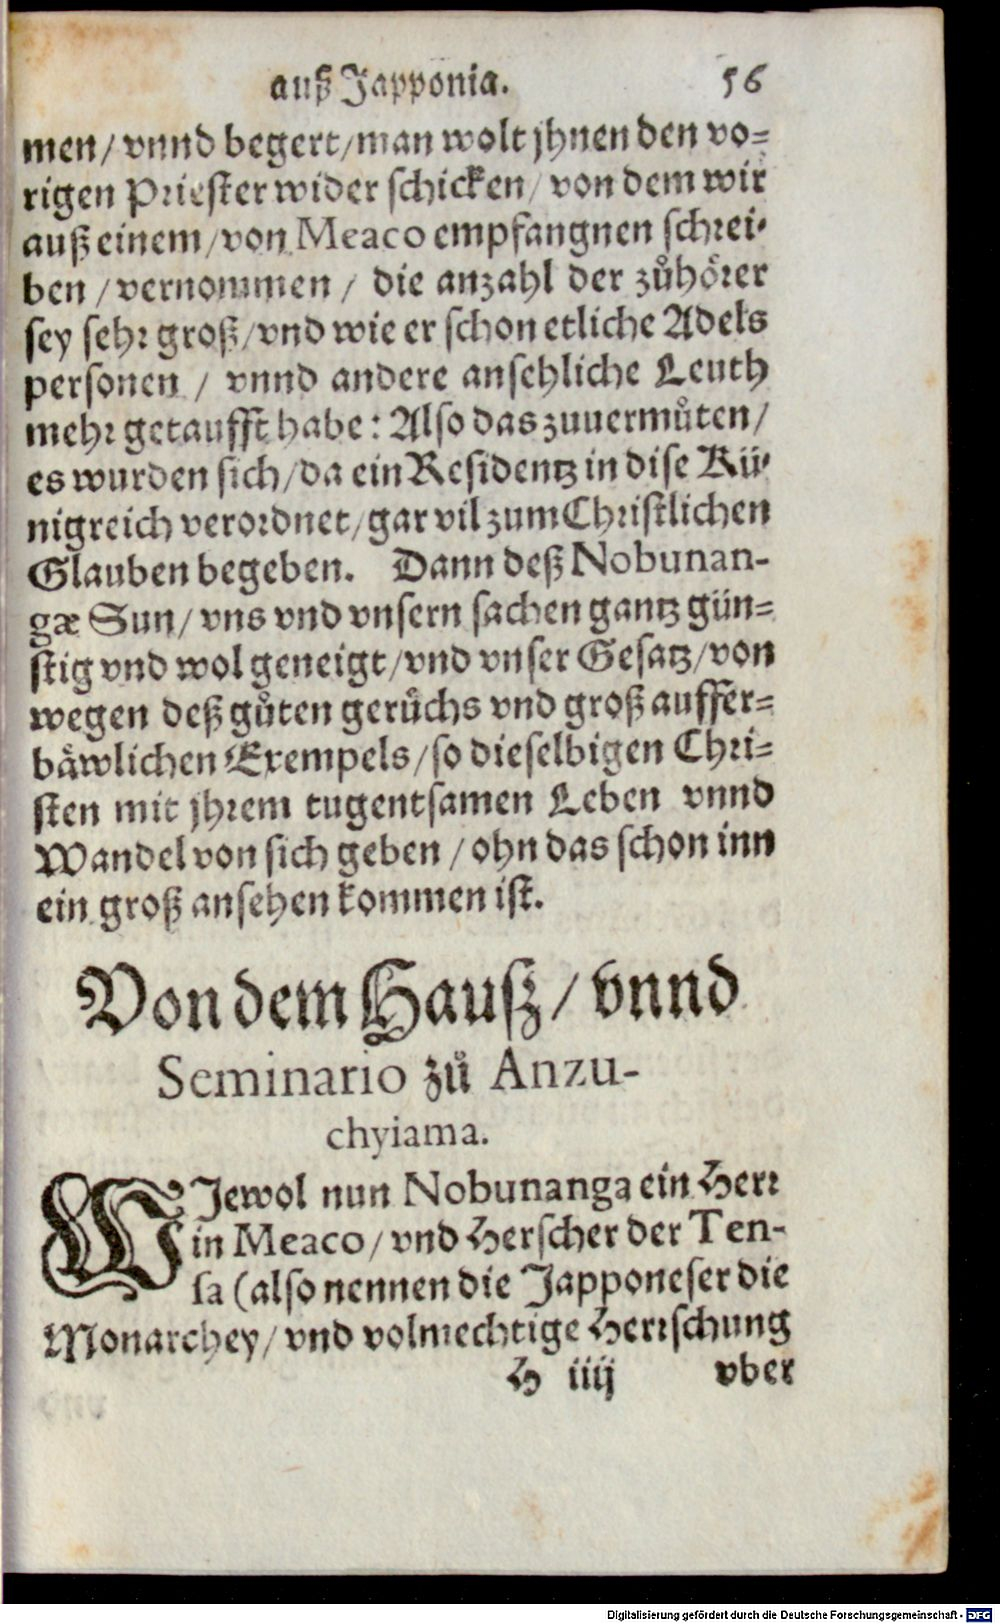 auß Japponia. 56
men / vnnd begert / man wolt jhnen den vo-
rigen Priester wider schicken / von dem wir
auß einem / von Meaco empfangnen schrei-
ben / vernommen / die anzahl der zůhörer
sey sehr groß / vnd wie er schon etliche Adels
personen / vnnd andere ansehliche Leuth
mehr getaufft habe: Also das zuuermůten /
es wurden sich / da ein Residentz in dise Kü-
nigreich verordnet / gar vil zum Christlichen
Glauben begeben. Dann deß Nobunan-
gæ Sun / vns vnd vnsern sachen gantz gün-
stig vnd wol geneigt / vnd vnser Gesatz / von
wegen deß gůten gerůchs vnd groß auffer-
bäwlichen Exempels / so dieselbigen Chri-
sten mit jhrem tugentsamen Leben vnnd
Wandel von sich geben / ohn das schon inn
ein groß ansehen kommen ist.
Von dem Hausz / vnnd
Seminario zů Anzu-
chyiama.
WJewol nun Nobunanga ein Herr
in Meaco / vnd Herscher der Ten-
sa (also nennen die Japponeser die
Monarchey / vnd volmechtige Herrschung
H iiij vber
Digitalisierung gefördert durch die Deutsche Forschungsgemeinschaft - DFG